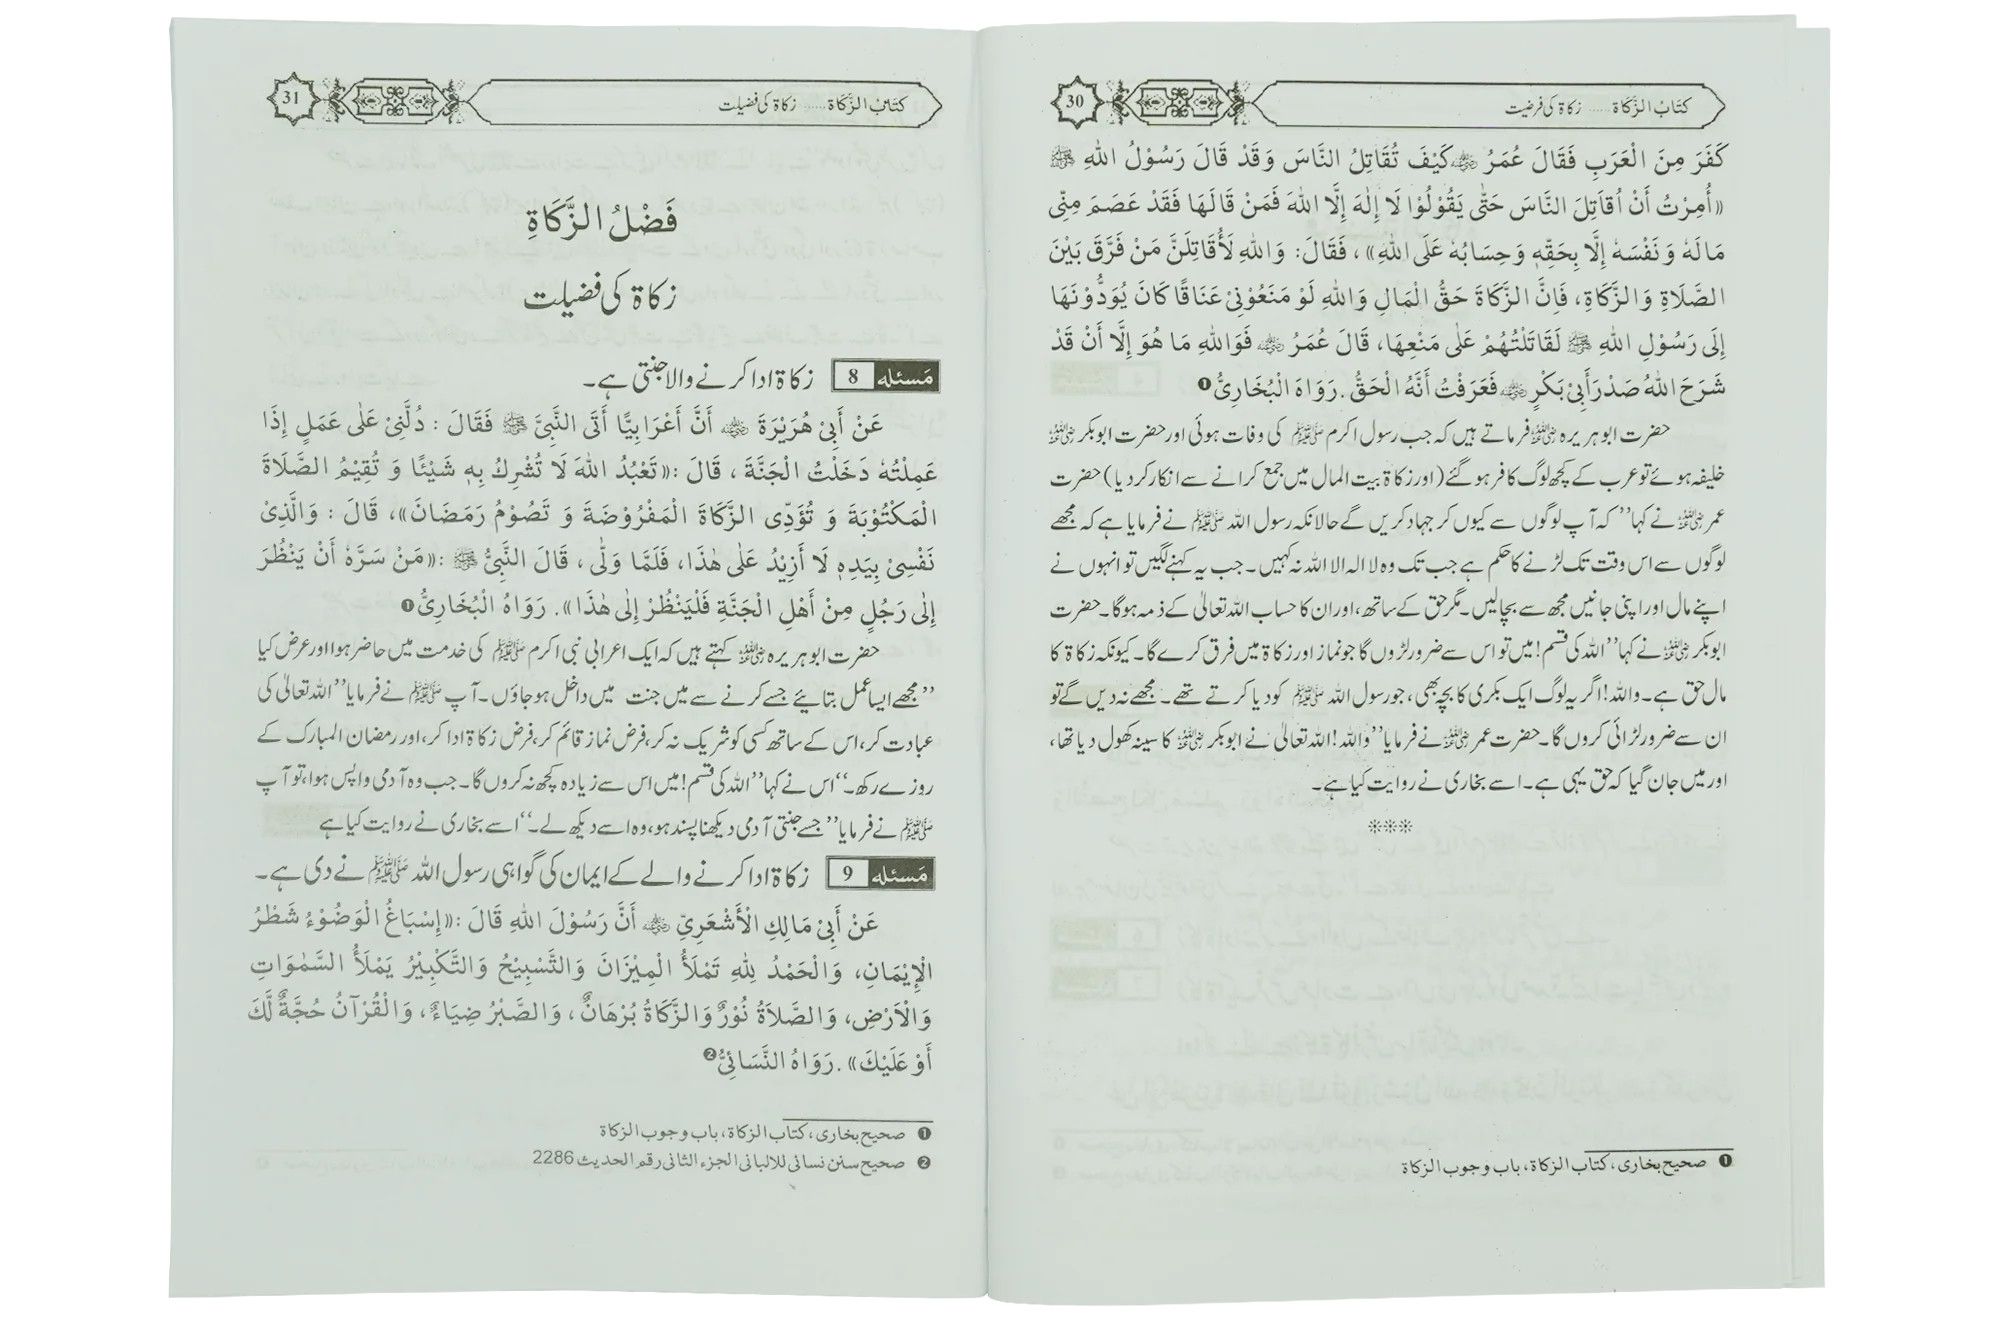 30
کتاب الزَّکاة ..... زکاۃ کی فرضیت
كَفَرَ مِنَ الْعَرَبِ فَقَالَ عُمَرُ ﷛ كَيْفَ تُقَاتِلُ النَّاسَ وَ قَدْ قَالَ رَسُوْلُ اللهِ ﷺ
«أُمِرْتُ أَنْ أُقَاتِلَ النَّاسَ حَتّٰى يَقُوْلُوْا لَا إِلٰهَ إِلَّا اللهَ فَمَنْ قَالَهَا فَقَدْ عَصَمَ مِنِّى
مَالَهُ وَ نَفْسَهُ إِلَّا بِحَقِّهٖ وَ حِسَابُهُ عَلَى اللهِ» ، فَقَالَ: وَاللهِ لَأُقَاتِلَنَّ مَنْ فَرَّقَ بَيْنَ
الصَّلَاةِ وَ الزَّكَاةِ، فَإِنَّ الزَّكَاةَ حَقُّ الْمَالِ وَاللهِ لَوْ مَنَعُوْنِىْ عَنَاقًا كَانَ يُوَدُّوْنَهَا
إِلَى رَسُوْلِ اللهِ ﷺ لَقَاتَلْتُهُمْ عَلٰى مَنْعِهَا، قَالَ عُمَرُ ﷛ فَوَاللهِ مَا هُوَ إِلَّا أَنْ قَدْ
شَرَحَ اللهُ صَدْرَ أَبِىْ بَكْرٍ ﷛ فَعَرَفْتُ أَنَّهُ الْحَقُّ . رَوَاهَ الْبُخَارِىُّ ❶
حضرت ابو ہریرہ ﷛ فرماتے ہیں کہ جب رسول اکرم ﷺ کی وفات ہوئی اور حضرت ابوبکر ﷛
خلیفہ ہوئے تو عرب کے کچھ لوگ کافر ہو گئے (اور زکاۃ بیت المال میں جمع کرانے سے انکار کر دیا) حضرت
عمر ﷛ نے کہا’’ کہ آپ لوگوں سے کیوں کر جہاد کریں گے حالانکہ رسول اللہ ﷺ نے فرمایا ہے کہ مجھے
لوگوں سے اس وقت تک لڑنے کا حکم ہے جب تک وہ لا الہ الا اللہ نہ کہیں۔ جب یہ کہنے لگیں تو انہوں نے
اپنے مال اور اپنی جانیں مجھ سے بچالیں۔ مگر حق کے ساتھ، اور ان کا حساب اللہ تعالیٰ کے ذمہ ہوگا۔ حضرت
ابوبکر ﷛ نے کہا’’اللہ کی قسم! میں تو اس سے ضرور لڑوں گا جو نماز اور زکاۃ میں فرق کرے گا۔ کیونکہ زکاۃ کا
مال حق ہے۔ واللہ! اگر یہ لوگ ایک بکری کا بچہ بھی، جو رسول اللہ ﷺ کو دیا کرتے تھے۔ مجھے نہ دیں گے تو
ان سے ضرور لڑائی کروں گا۔ حضرت عمر ﷛ نے فرمایا’’واللہ! اللہ تعالیٰ نے ابوبکر ﷛ کا سینہ کھول دیا تھا،
اور میں جان گیا کہ حق یہی ہے۔ اسے بخاری نے روایت کیا ہے۔
***
❶ صحیح بخاری، کتاب الزکاة، باب وجوب الزکاة
31
کتابُ الزَّکَاة ..... زکاۃ کی فضیلت
فَضْلُ الزَّكَاةِ
زکاۃ کی فضیلت
مَسئله 8 زکاۃ ادا کرنے والا جنتی ہے۔
عَنْ أَبِىْ هُرَيْرَةَ ﷛ أَنَّ أَعْرَابِيًّا أَتَى النَّبِىَّ ﷺ فَقَالَ : دُلَّنِىْ عَلٰى عَمَلٍ إِذَا
عَمِلْتُهُ دَخَلْتُ الْجَنَّةَ ، قَالَ :«تَعْبُدُ اللهَ لَا تُشْرِكُ بِهٖ شَيْئًا وَ تُقِيْمُ الصَّلَاةَ
الْمَكْتُوْبَةَ وَ تُؤَدِّى الزَّكَاةَ الْمَفْرُوْضَةَ وَ تَصُوْمُ رَمَضَانَ»، قَالَ : وَالَّذِىْ
نَفْسِىْ بِيَدِهٖ لَا أَزِيْدُ عَلٰى هٰذَا، فَلَمَّا وَلّٰى ، قَالَ النَّبِىُّ ﷺ :«مَنْ سَرَّهُ أَنْ يَنْظُرَ
إِلٰى رَجُلٍ مِنْ أَهْلِ الْجَنَّةِ فَلْيَنْظُرْ إِلٰى هٰذَا» . رَوَاهُ الْبُخَارِىُّ ❶
حضرت ابو ہریرہ ﷛ کہتے ہیں کہ ایک اعرابی نبی اکرم ﷺ کی خدمت میں حاضر ہوا اور عرض کیا
’’مجھے ایسا عمل بتائیے جسے کرنے سے میں جنت میں داخل ہو جاؤں۔ آپ ﷺ نے فرمایا’’اللہ تعالیٰ کی
عبادت کر، اس کے ساتھ کسی کو شریک نہ کر، فرض نماز قائم کر، فرض زکاۃ ادا کر، اور رمضان المبارک کے
روزے رکھ۔‘‘ اس نے کہا’’اللہ کی قسم! میں اس سے زیادہ کچھ نہ کروں گا۔ جب وہ آدمی واپس ہوا، تو آپ
ﷺ نے فرمایا’’جسے جنتی آدمی دیکھنا پسند ہو، وہ اسے دیکھ لے۔‘‘ اسے بخاری نے روایت کیا ہے
مَسئله 9 زکاۃ ادا کرنے والے کے ایمان کی گواہی رسول اللہ ﷺ نے دی ہے۔
عَنْ أَبِىْ مَالِكِ الْأَشْعَرِىِّ ﷛ أَنَّ رَسُوْلَ اللهِ قَالَ :«إِسْبَاغُ الْوَضُوْءُ شَطْرُ
الْإِيْمَانِ، وَالْحَمْدُ لِلّٰهِ تَمْلَأُ الْمِيْزَانَ وَالتَّسْبِيْحُ وَالتَّكْبِيْرُ يَمْلَأُ السَّمٰوَاتِ
وَالْاَرْضِ، وَالصَّلَاةُ نُوْرٌ وَالزَّكَاةُ بُرْهَانٌ، وَالصَّبْرُ ضِيَاءٌ، وَالْقُرْآنُ حُجَّةٌ لَّكَ
أَوْ عَلَيْكَ» . رَوَاهُ النَّسَائِىُّ ❷
❶ صحیح بخاری، کتاب الزکاة، باب وجوب الزکاة
❷ صحیح سنن نسائی للالبانی الجزء الثانی رقم الحدیث 2286